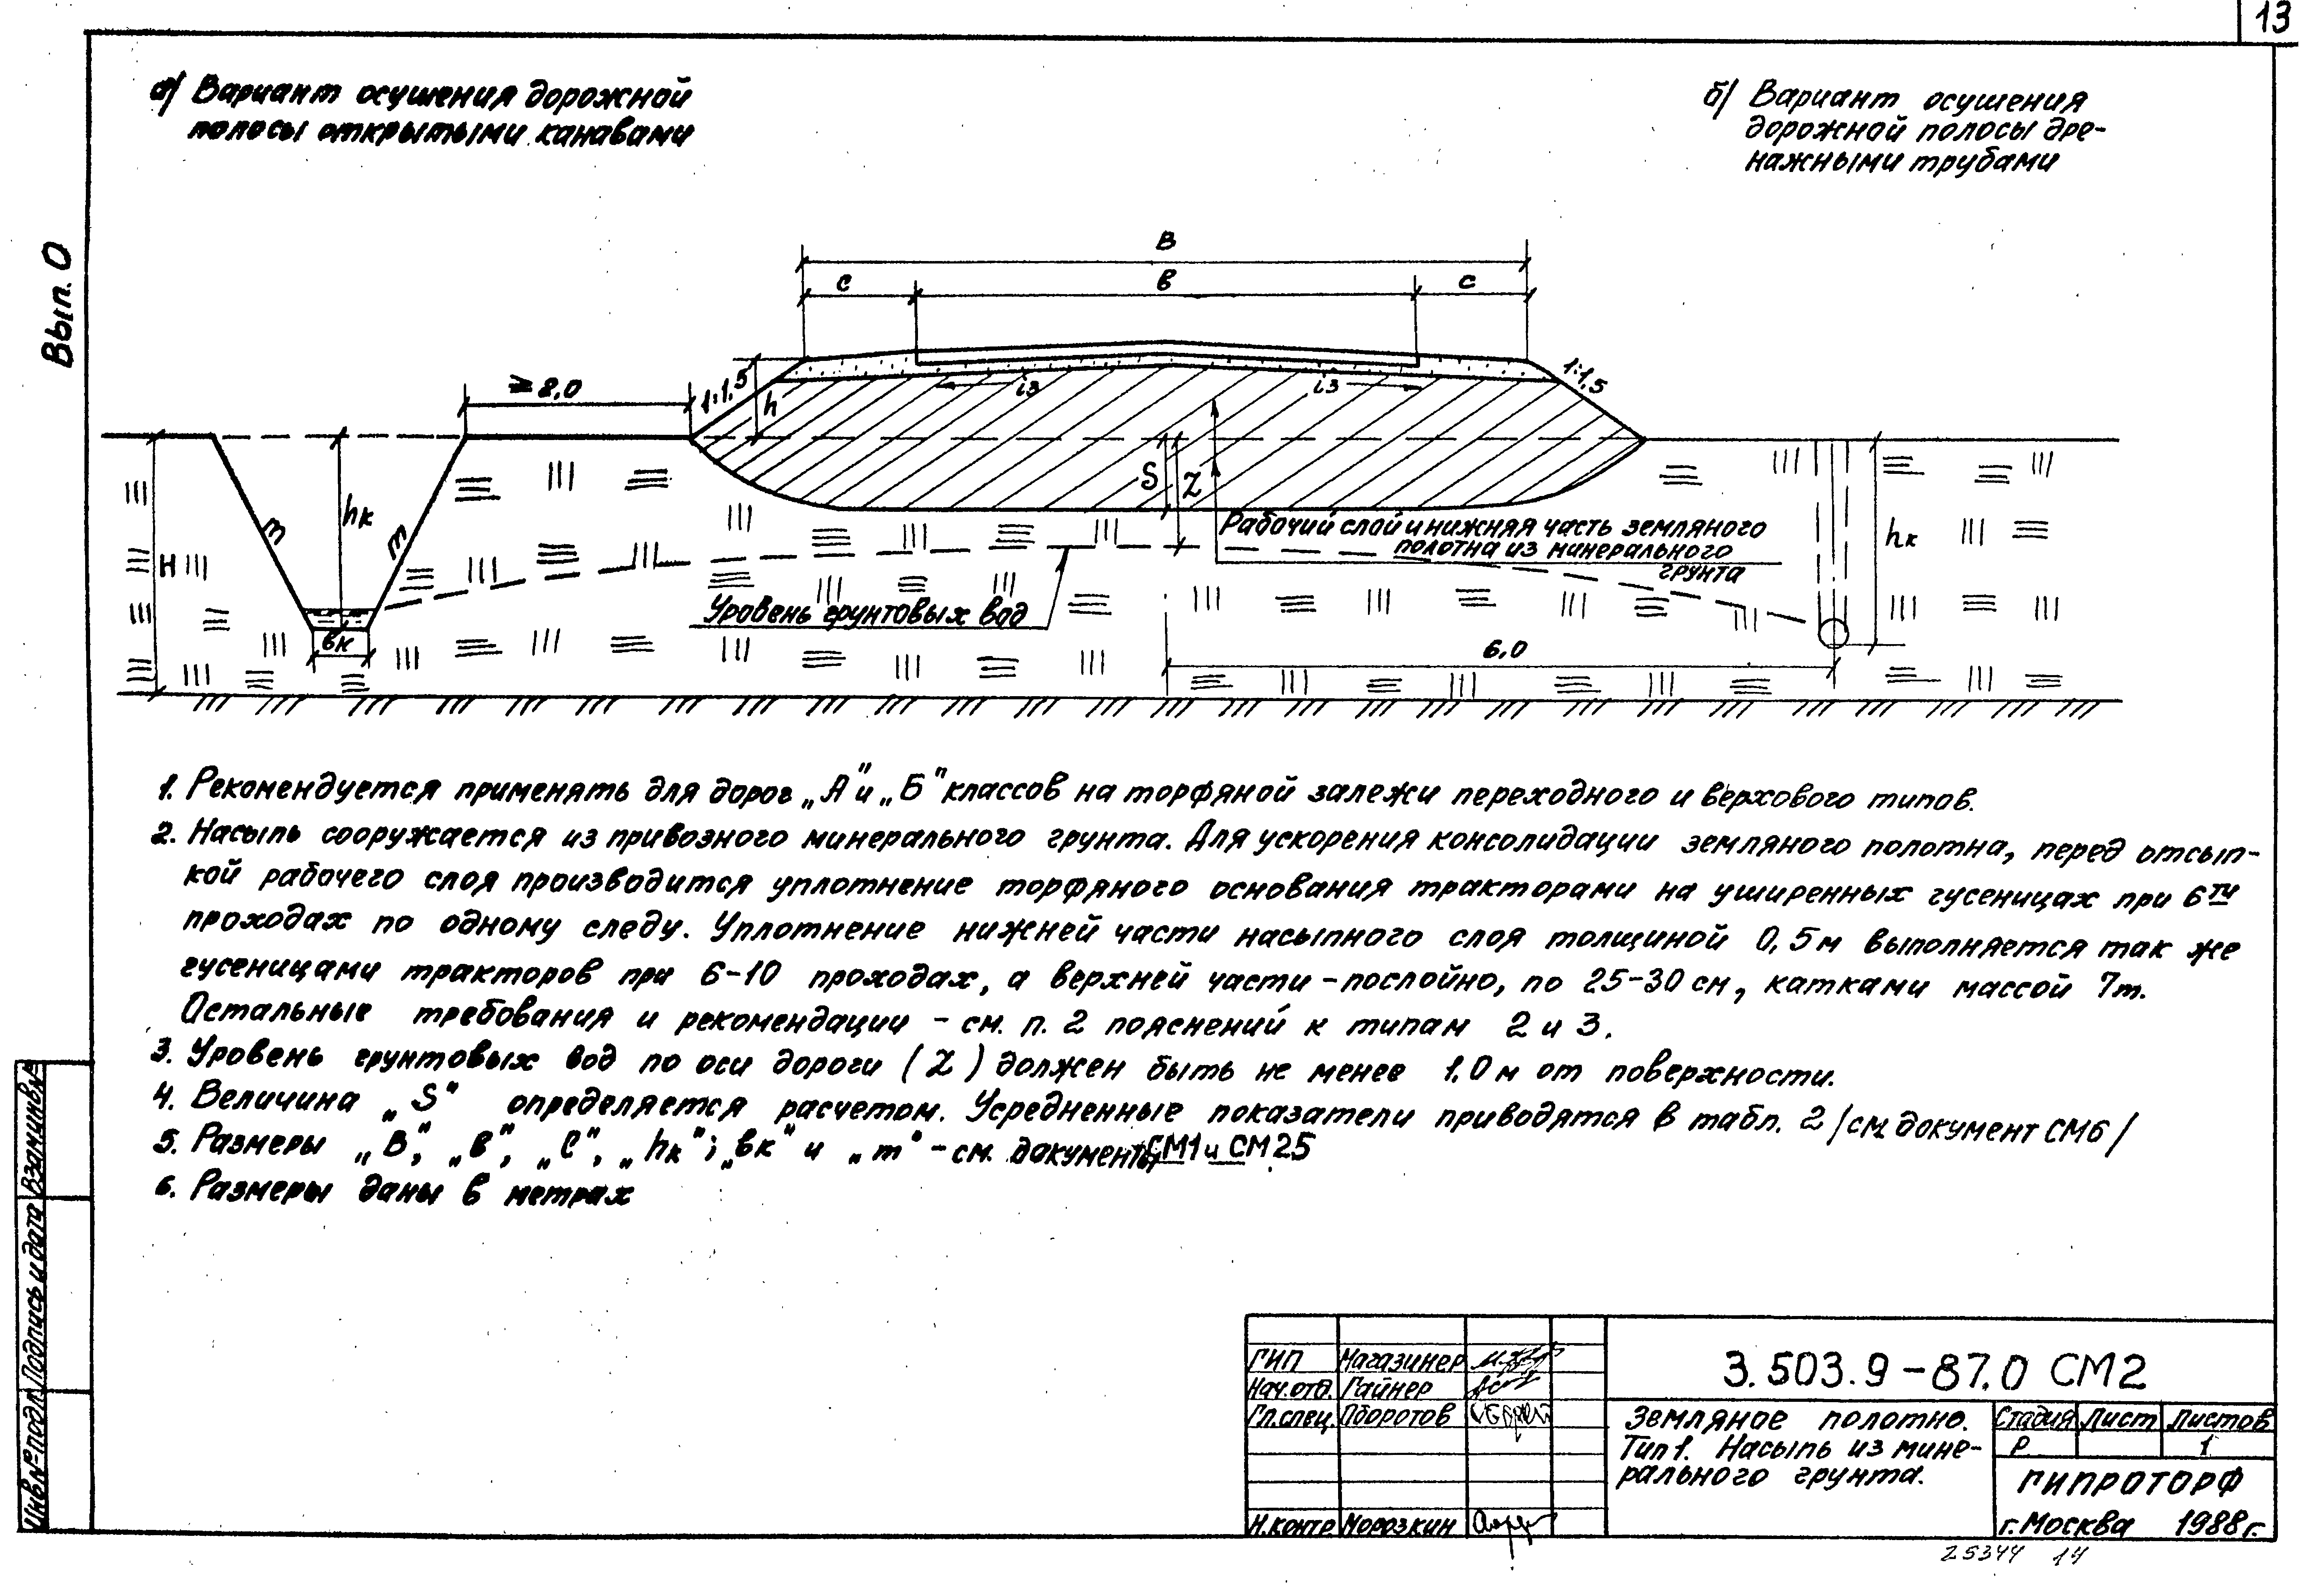 13
Вып. 0
а) Вариант осушения дорожной
полосы открытыми канавами
б) Вариант осушения
дорожной полосы дре-
нажными трубами
В
с в с
≥ 2,0
1:1,5
h
iз iз
1:1,5
S Z
H
hк
m m
вк
hк
Рабочий слой и нижняя часть земляного
полотна из минерального
грунта
Уровень грунтовых вод
6,0
1. Рекомендуется применять для дорог „А" и „Б" классов на торфяной залежи переходного и верхового типов.
2. Насыпь сооружается из привозного минерального грунта. Для ускорения консолидации земляного полотна, перед отсып-
кой рабочего слоя производится уплотнение торфяного основания тракторами на уширенных гусеницах при 6ти
проходах по одному следу. Уплотнение нижней части насыпного слоя толщиной 0,5 м выполняется так же
гусеницами тракторов при 6-10 проходах, а верхней части - послойно, по 25-30 см, катками массой 7т.
Остальные требования и рекомендации - см. п. 2 пояснений к типам 2 и 3.
3. Уровень грунтовых вод по оси дороги (Z) должен быть не менее 1,0 м от поверхности.
4. Величина „S" определяется расчетом. Усредненные показатели приводятся в табл. 2 /см. документ СМ6/
5. Размеры „В", „в", „С", „hк"; „вк" и „m" - см. документы СМ1 и СМ25
6. Размеры даны в метрах
Взам.инв.№
Подпись и дата
Инв.№ подл.
ГИП Магазинер
Нач.отд. Гайнер
Гл.спец. Оборотов
Н.контр Морозкин
3.503.9-87.0 СМ2
Земляное полотно.
Тип 1. Насыпь из мине-
рального грунта.
Стадия Лист Листов
Р 1
ГИПРОТОРФ
г. Москва 1988г.
25344 14